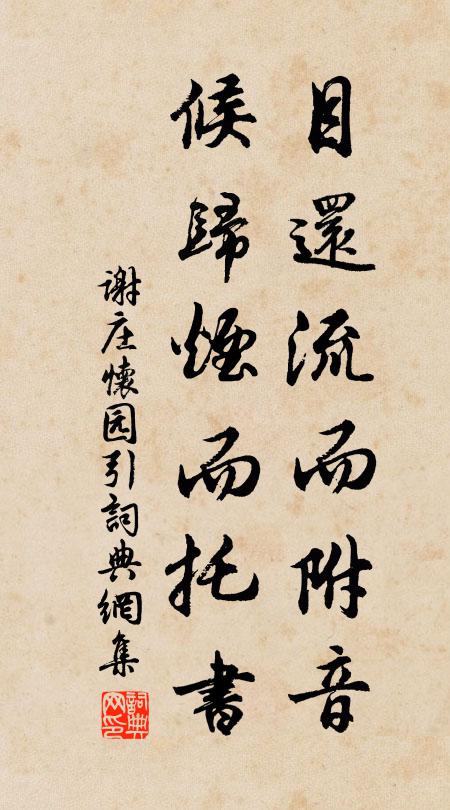 目還流而附音
候歸煙而托書
谢庄懷园引詞典網集
詞典网印